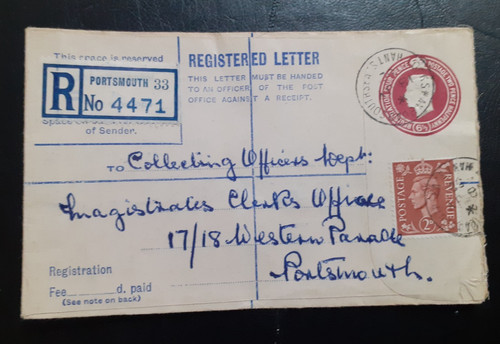 This space is reserved
REGISTERED LETTER
THIS LETTER MUST BE HANDED
TO AN OFFICER OF THE POST
OFFICE AGAINST A RECEIPT.
R PORTSMOUTH 33
No 4471
of Sender.
TO Collecting Officers Dept:
Magistrates Clerks Office
17/18 Western Parade
Portsmouth.
POSTAGE REVENUE
2D
Registration
Fee d. paid
(See note on back)